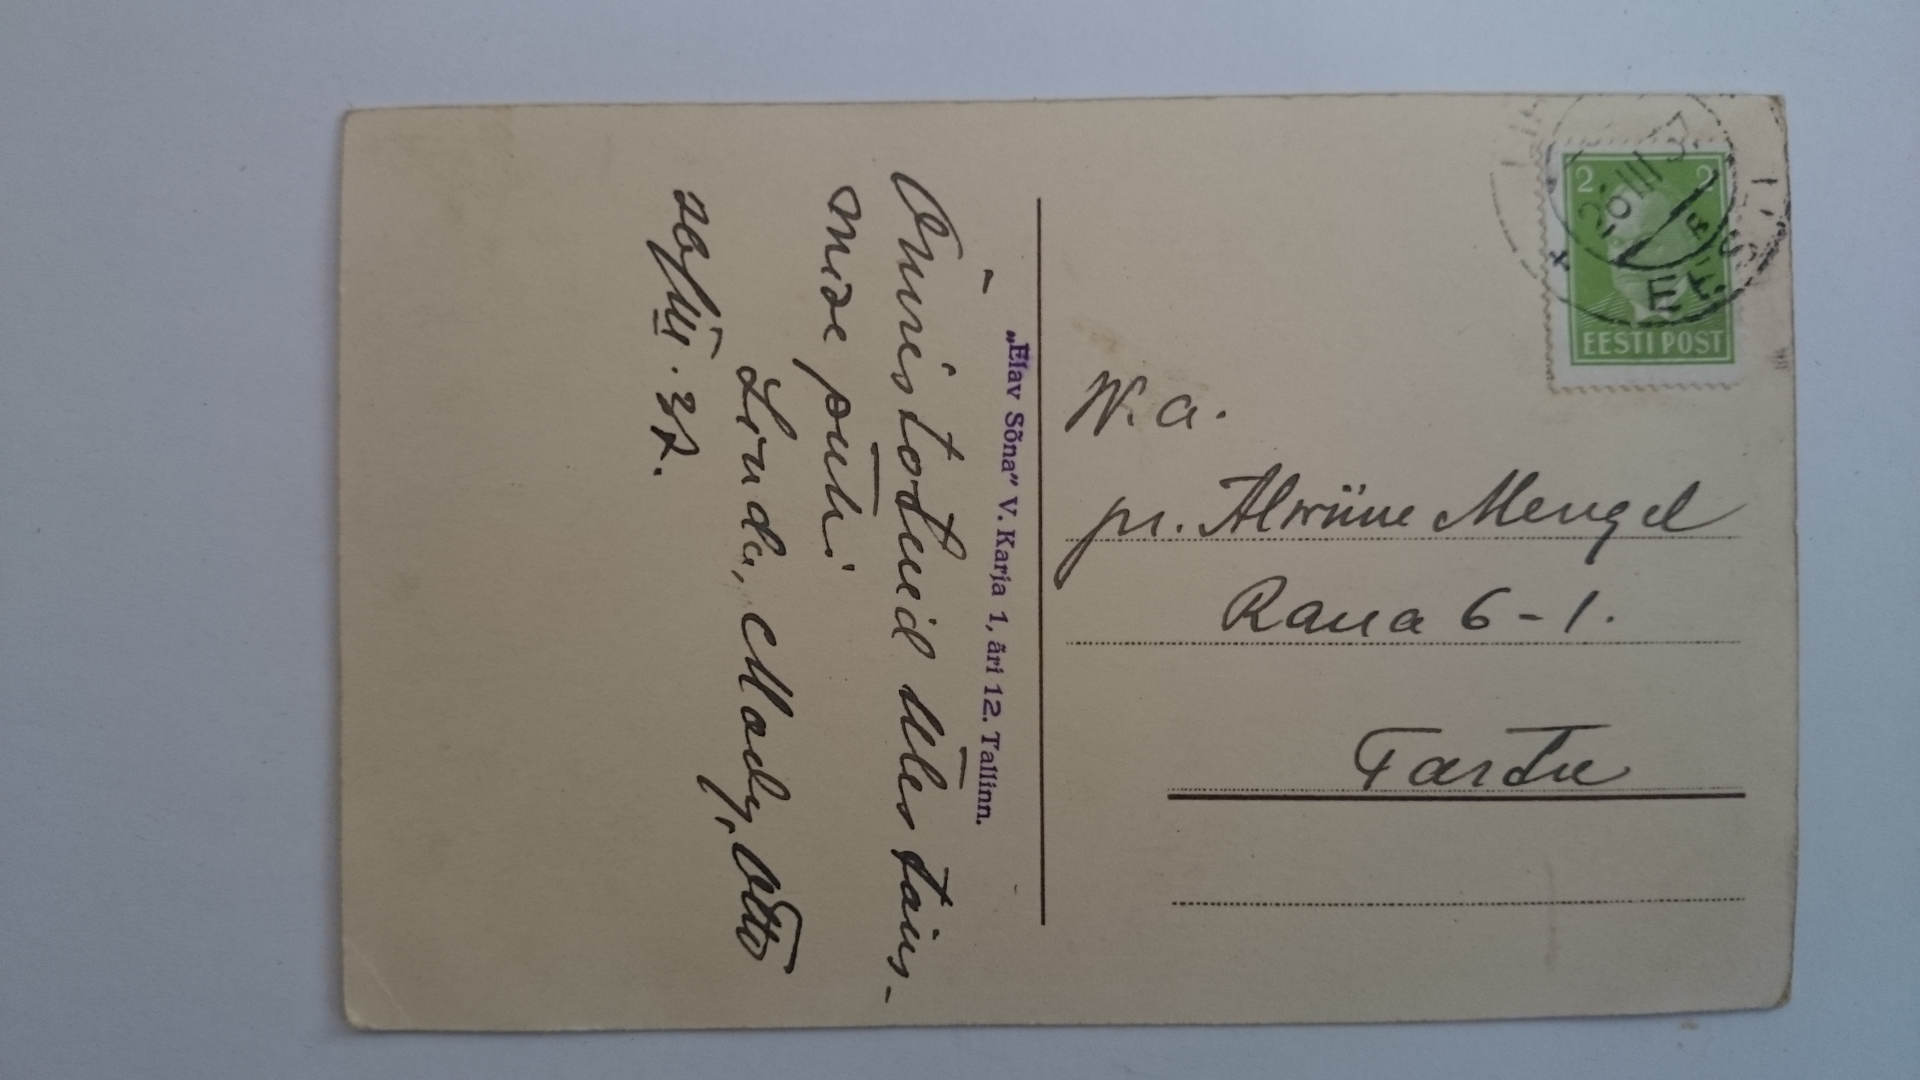 Õnnistatud Ülestõus-
mise pühi!
Linda, Mady, Otto
26/III. 37.
„Elav Sõna” V. Karja 1, äri 12. Tallinn.
2 2
26 III 37
EESTI POST
W. a.
pr. Alwiine Mengel
Raua 6-1.
Tartu